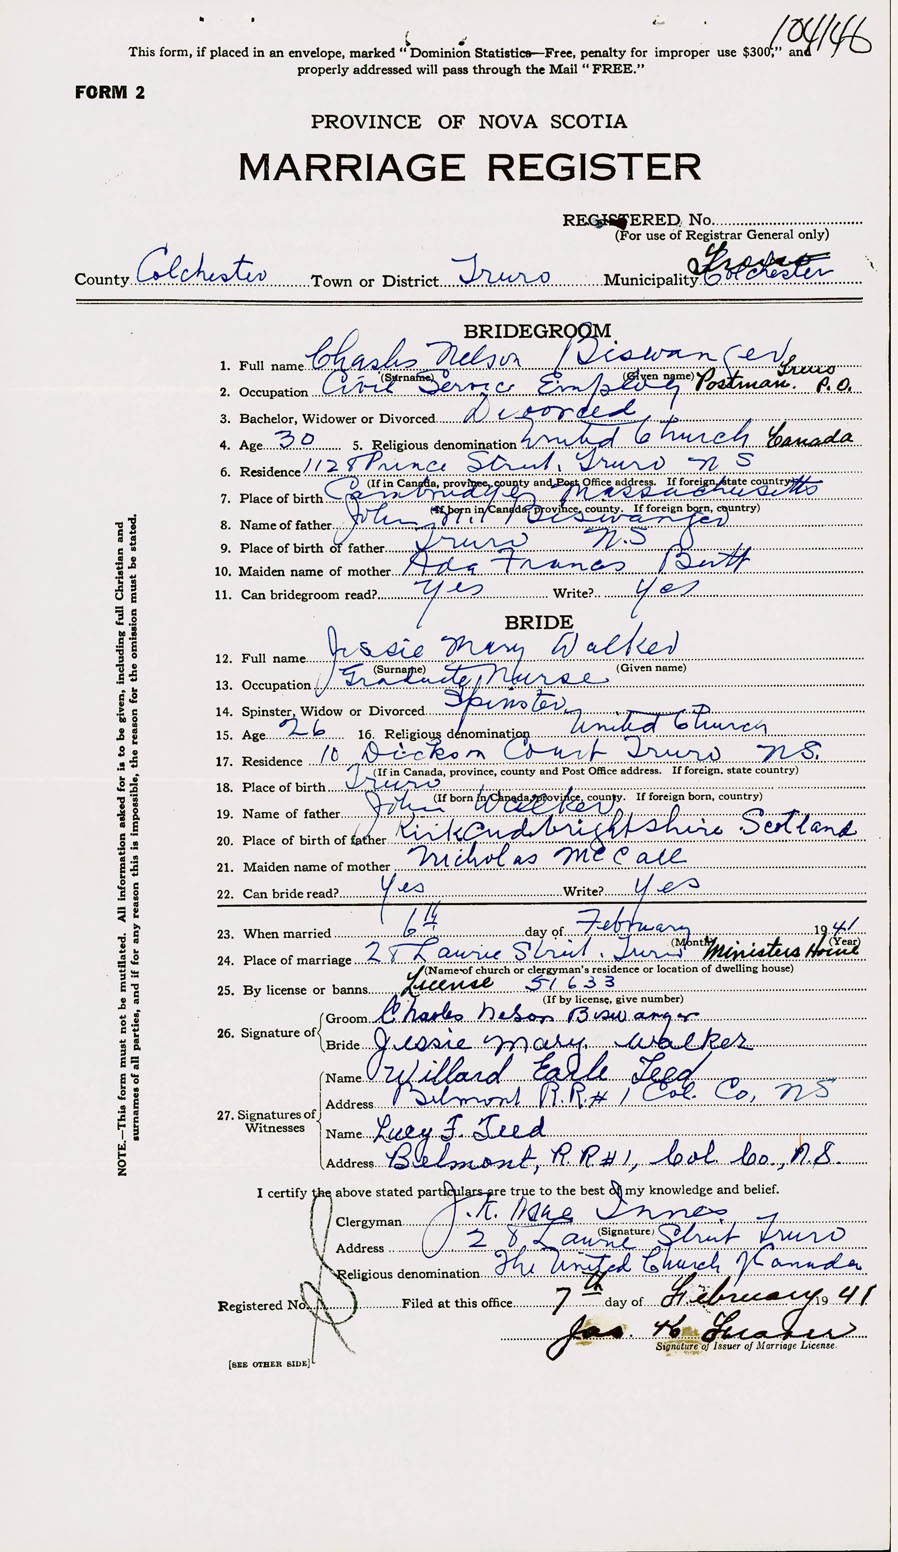 104146
This form, if placed in an envelope, marked "Dominion Statistics—Free, penalty for improper use $300," and
properly addressed will pass through the Mail "FREE."
FORM 2
PROVINCE OF NOVA SCOTIA
MARRIAGE REGISTER
REGISTERED No.
(For use of Registrar General only)
Truro
County Colchester Town or District Truro Municipality Colchester
BRIDEGROOM
1. Full name Charles Nelson Biswanger
(Surname) (Given name) Truro
2. Occupation Civil Service Employ Postman. P.O.
3. Bachelor, Widower or Divorced Divorced
4. Age 30 5. Religious denomination United Church Canada
6. Residence 1128 Prince Street, Truro N S
(If in Canada, province, county and Post Office address. If foreign, state country)
7. Place of birth Cambridge, Massachusetts
(If born in Canada, province, county. If foreign born, country)
8. Name of father John Biswanger
9. Place of birth of father Truro N.S
10. Maiden name of mother Ada Frances
11. Can bridegroom read? Yes Write? Yes
BRIDE
12. Full name Jessie Mary Walker
(Surname) (Given name)
13. Occupation Graduate Nurse
14. Spinster, Widow or Divorced Spinster
15. Age 26 16. Religious denomination United Church
17. Residence 10 Dickson Court Truro N.S.
(If in Canada, province, county and Post Office address. If foreign, state country)
18. Place of birth Truro
(If born in Canada, province, county. If foreign born, country)
19. Name of father John Walker
20. Place of birth of father Kirkcudbrightshire Scotland
21. Maiden name of mother Nicholas McCall
22. Can bride read? Yes Write? Yes
23. When married 6th day of February 1941
(Month) (Year)
24. Place of marriage 28 Laurie Street, Truro Ministers Home
(Name of church or clergyman's residence or location of dwelling house)
25. By license or banns License 51633
(If by license, give number)
26. Signature of
Groom Charles Nelson Biswanger
Bride Jessie Mary Walker
27. Signatures of Witnesses
Name Willard Earle Teed
Address Belmont R.R.# 1 Col. Co, NS
Name Lucy F. Teed
Address Belmont, R.R #1, Col. Co., N.S.
I certify the above stated particulars are true to the best of my knowledge and belief.
Clergyman Innes
(Signature)
Address 28 Laurie Street Truro
Religious denomination The United Church of Canada
Registered No. Filed at this office 7th day of February 1941
Jas.
Signature of Issuer of Marriage License.
[SEE OTHER SIDE]
NOTE.—This form must not be mutilated. All information asked for is to be given, including full Christian and
surnames of all parties, and if for any reason this is impossible, the reason for the omission must be stated.